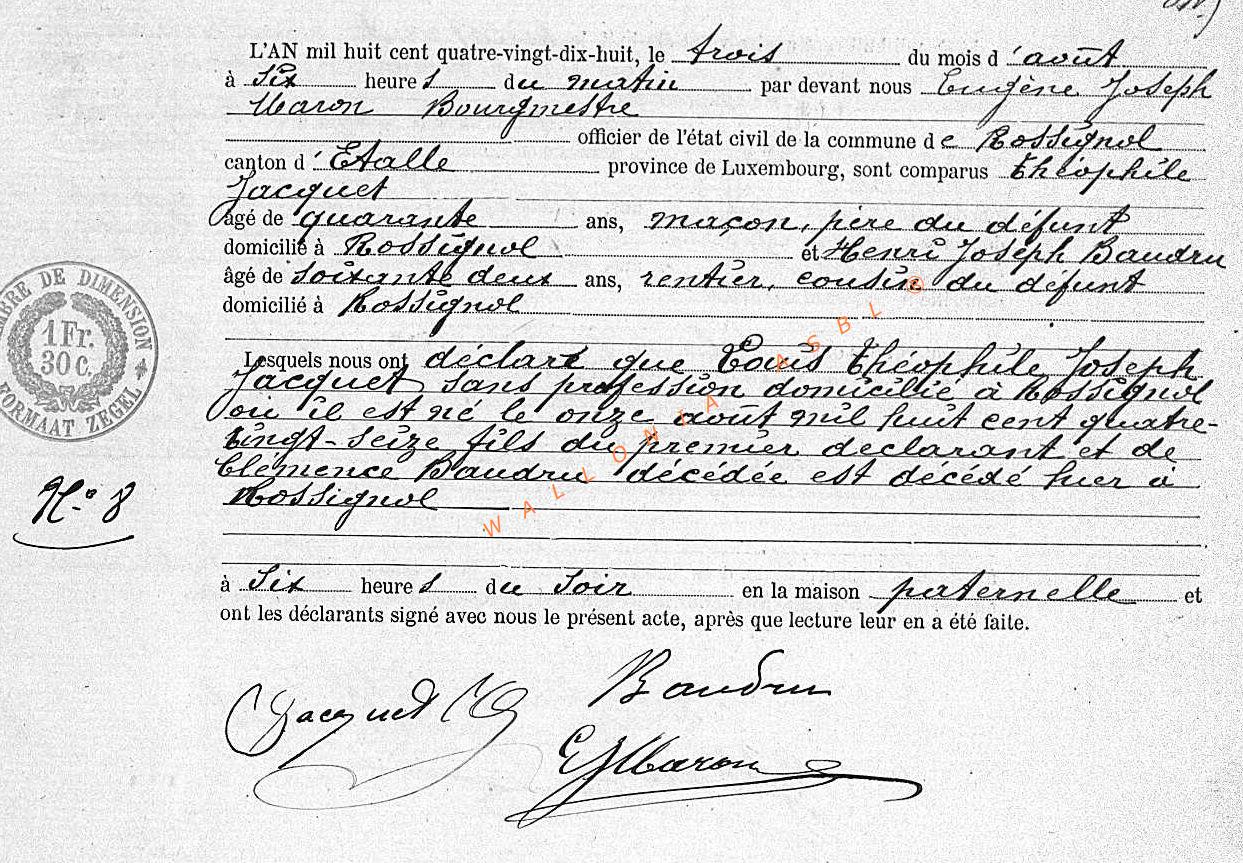 L'AN mil huit cent quatre-vingt-dix-huit, le trois du mois d'août
à six heures du matin par devant nous Eugène Joseph
Maron Bourgmestre
officier de l'état civil de la commune de Rossignol
canton d'Etalle province de Luxembourg, sont comparus théophile
Jacquet
âgé de quarante ans, maçon, père du défunt
domicilié à Rossignol et Henri Joseph Baudru
âgé de soixante deux ans, rentier, cousin du défunt
domicilié à Rossignol
Lesquels nous ont déclaré que Louis théophile Joseph
Jacquet sans profession domicilié à Rossignol
où il est né le onze août mil huit cent quatre-
vingt-seize fils du premier declarant et de
Clémence Baudru décédée est décédé hier à
Rossignol
à six heures du soir en la maison paternelle et
ont les déclarants signé avec nous le présent acte, après que lecture leur en a été faite.
Jacquet Baudru
EJMaron
TIMBRE DE DIMENSION
1 Fr.
30 c.
FORMAAT ZEGEL
N.° 8
WALLONIA ASBL ©